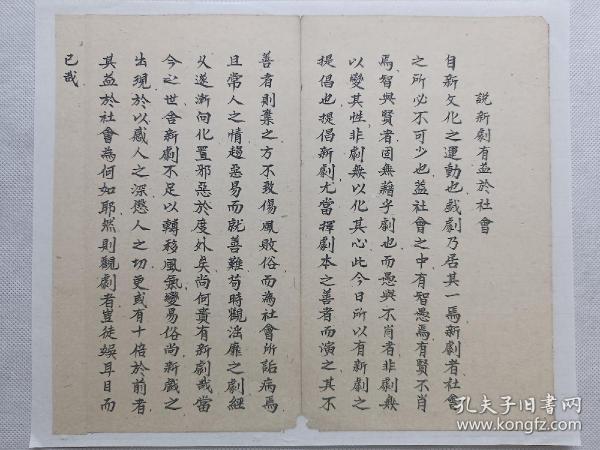 說新劇有益於社會
自新文化之運動也戲劇乃居其一焉新劇者社會
之所必不可少也益社會之中有智愚焉有賢不肖
焉智與賢者固無藉乎劇也而愚與不肖者非劇無
以變其性非劇無以化其心此今日所以有新劇之
提倡也提倡新劇尤當擇劇本之善者而演之其不
善者則棄之方不致傷風敗俗而為社會所詬病焉
且常人之情趨惡易而就善難苟時觀淫靡之劇經
久遂漸向化置邪惡於度外矣尚何貴有新劇哉當
今之世舍新劇不足以轉移風氣變易俗尚新戲之
出現於以感人之深懲人之切更或有十倍於前者
其益於社會為何如耶然則觀劇者豈徒娛耳目而
已哉
孔夫子旧書网
www.kongfz.com